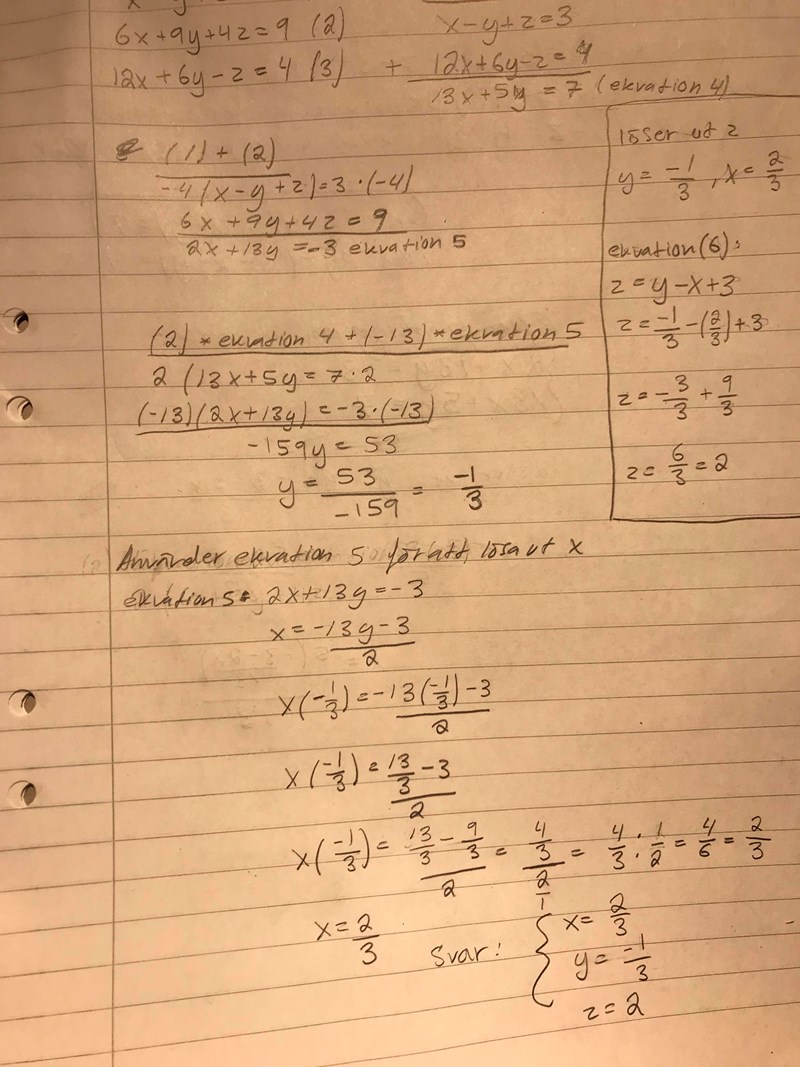 6x+9y+4z=9 (2)
12x+6y-z=4 (3)
x-y+z=3
+ 12x+6y-z=4
13x+5y=7 (ekvation 4)
(1)+(2)
-4(x-y+z)=3·(-4)
6x+9y+4z=9
2x+13y=-3 ekvation 5
(2)*ekvation 4+(-13)*ekvation 5
2(13x+5y=7·2
(-13)(2x+13y)=-3·(-13)
-159y=53
y=53/-159=-1/3
löser ut z
y=-1/3, x=2/3
ekvation(6):
z=y-x+3
z=-1/3-(2/3)+3
z=-3/3+9/3
z=6/3=2
Använder ekvation 5 för att lösa ut x
ekvation 5: 2x+13y=-3
x=-13y-3/2
x(-1/3)=-13(-1/3)-3/2
x(-1/3)=13/3-3/2
x(-1/3)=13/3-9/3/2=4/3/2/1=4/3·1/2=4/6=2/3
x=2/3
Svar: { x=2/3
y=-1/3
z=2